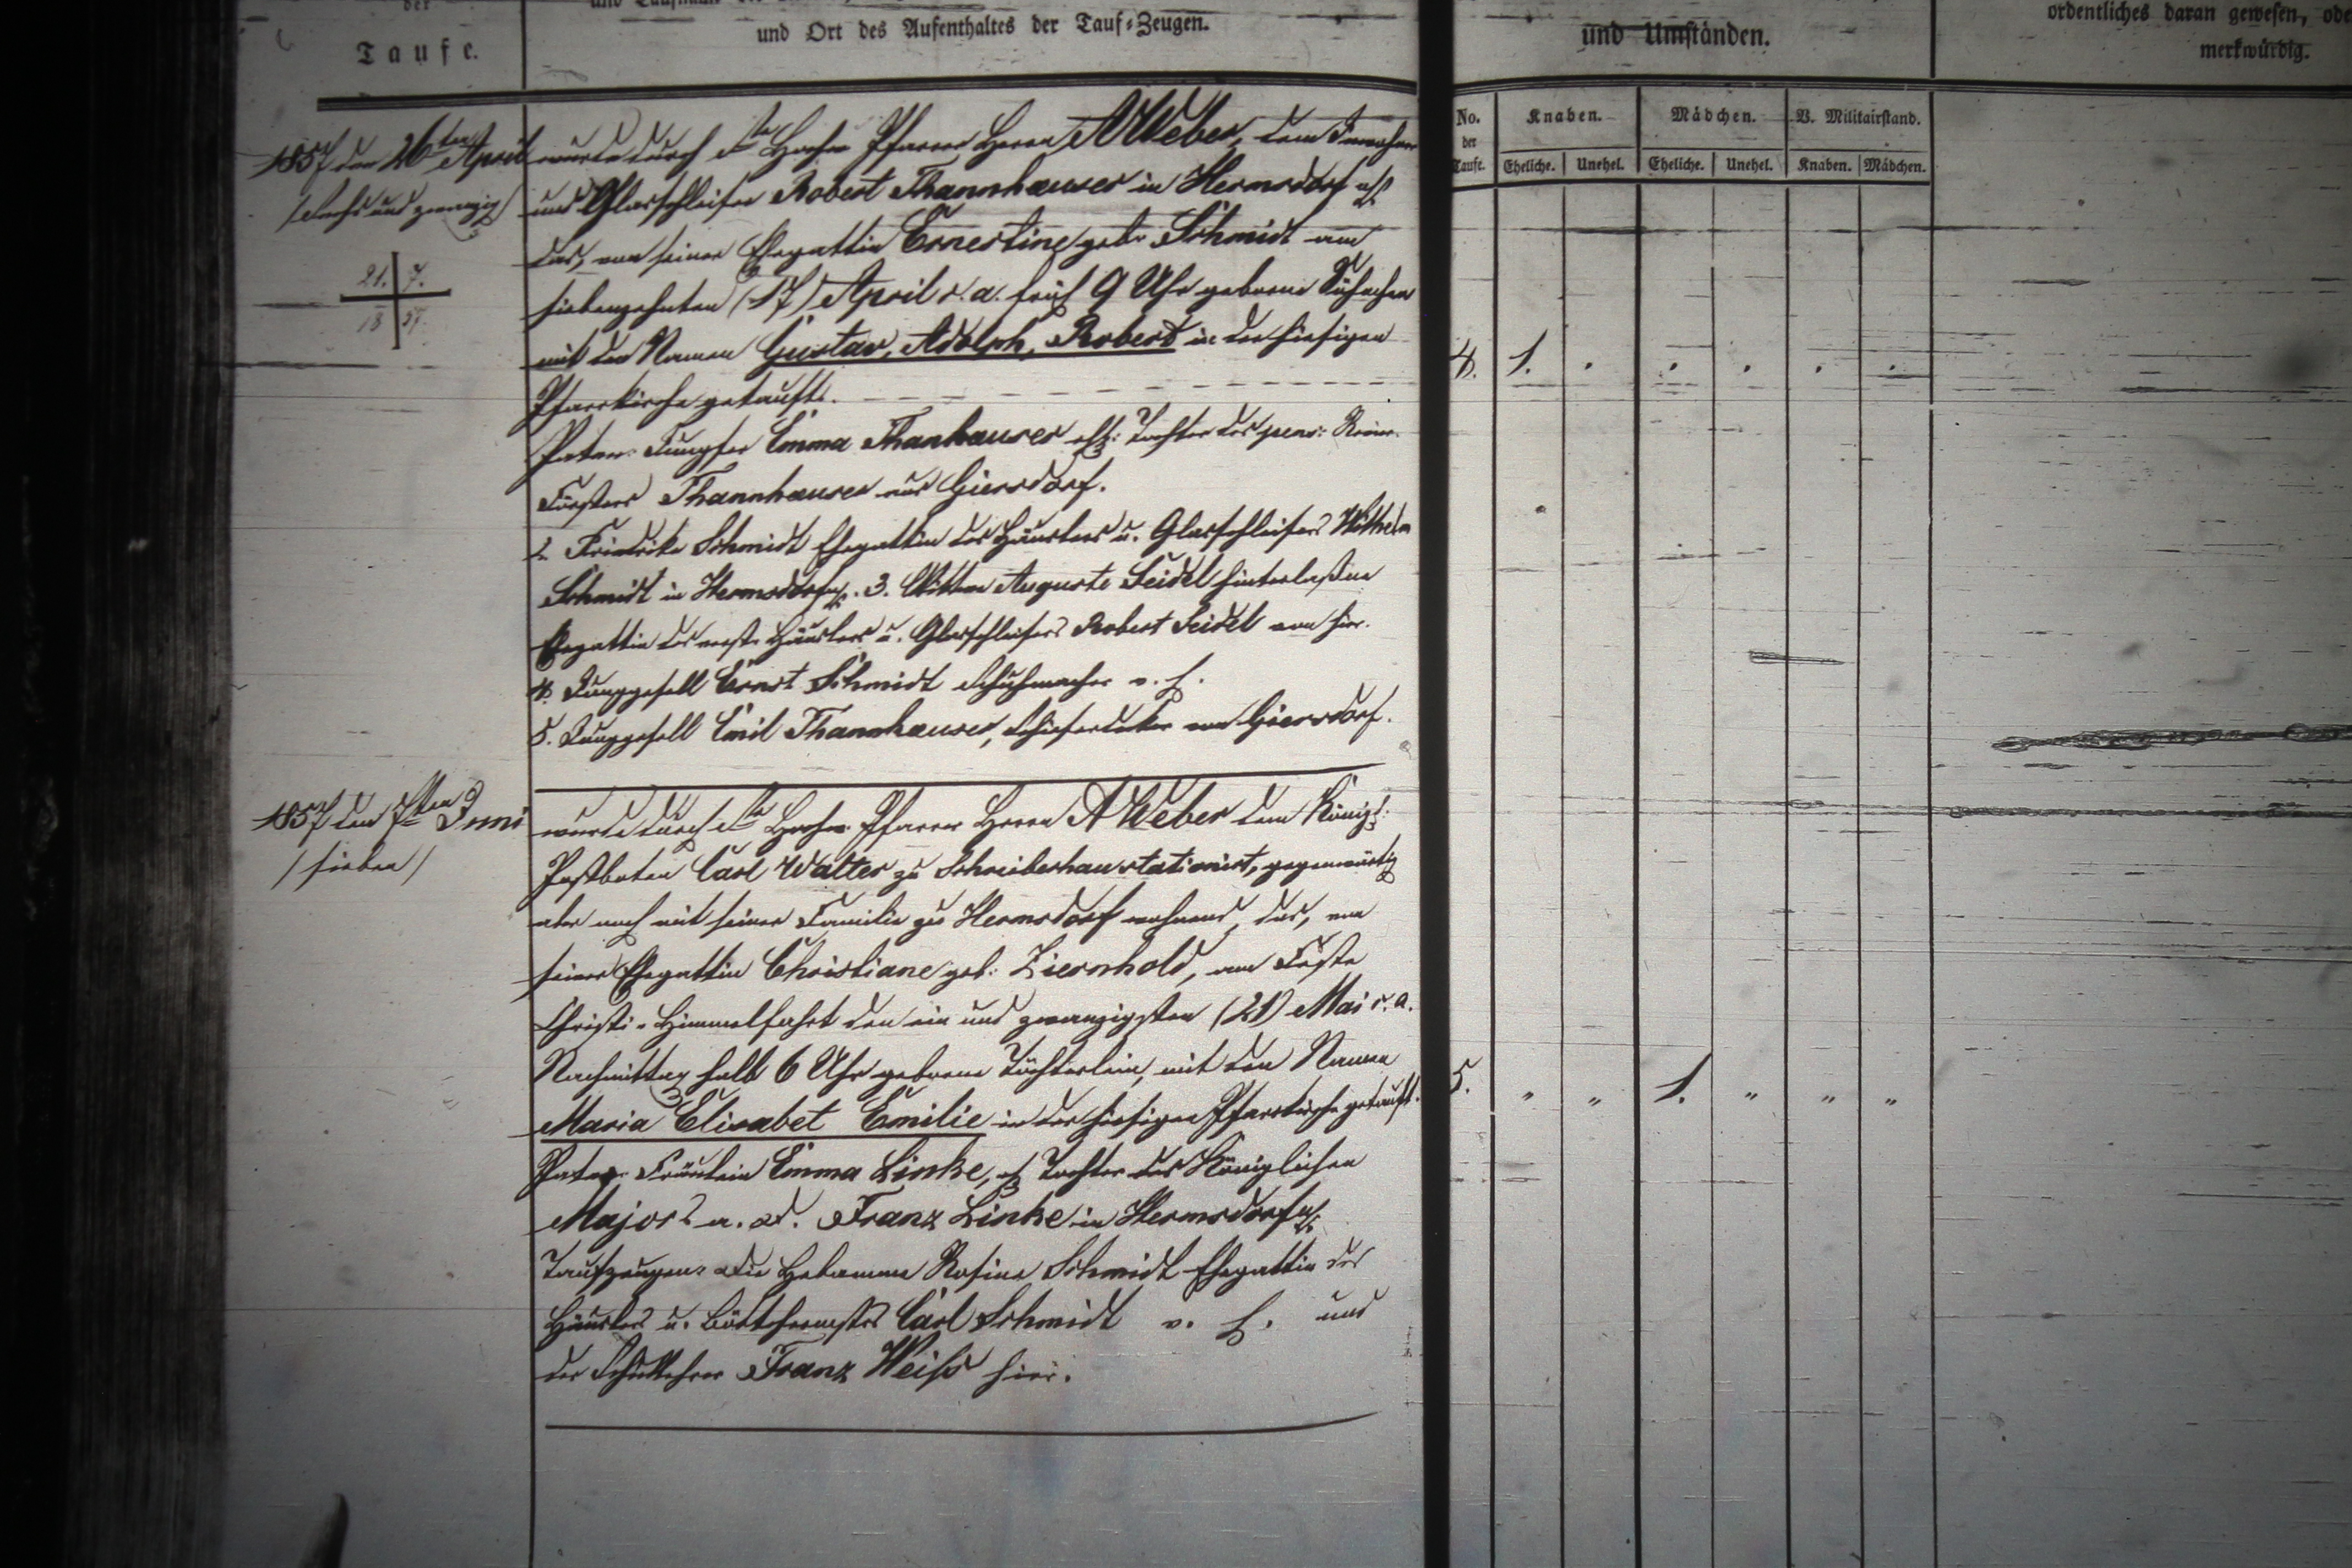 der
Taufe.
und Ort des Aufenthaltes der Tauf-Zeugen.
und Umständen.
ordentliches daran gewesen, ode
merkwürdig.
No.
der
Taufe.
Knaben.
Mädchen.
V. Militairstand.
Eheliche.
Unehel.
Eheliche.
Unehel.
Knaben.
Mädchen.
1857 den 26ten April
/sechs und zwanzig/
21. 7.
18 57.
wurde durch den Hochw. Pfarrer Herrn A Weber, dem Inwohner
und Glasschleifer Robert Thannhauser in Hermsdorf
das, von seiner Ehegattin Ernestine geb. Schmidt am
siebenzehnten (17) April c. a. früh 9 Uhr geborene Söhnchen
mit den Namen Gustav, Adolph, Robert in der hiesigen
Pfarrkirche getauft.
Paten: Jungfer Emma Thanhauser ehl: Tochter des pens: Revier-
Försters Thannhauser aus Giersdorf.
2. Friedrike Schmidt Ehegattin des Häuslers u. Glasschleifers Wilhelm
Schmidt in Hermsdorf. 3. Wittwe Auguste Seidel hinterlaßne
Ehegattin des verst. Häuslers u. Glasschleifers Robert Seidel von hier.
4. Junggesell Ernst Schmidt Schuhmacher v. h.
5. Junggesell Emil Thannhauser, Schieferdecker von Giersdorf.
4. 1. . . . . .
1857 den 7ten Juni
/sieben/
wurde durch den Hochw. Pfarrer Herrn A Weber dem Königl:
Postboten Carl Walter zu Schreiberhau stationirt, gegenwärtig
aber noch mit seiner Familie zu Hermsdorf wohnend, das, von
seiner Ehegattin Christiane geb: Ziernhold, am Feste
Christi-Himmelfahrt den ein und zwanzigsten (21) Mai c. a.
Nachmittag halb 6 Uhr geborene Töchterlein, mit den Namen
Maria Elisabet Emilie in der hiesigen Pfarrkirche getauft.
Paten: Fräulein Emma Linke, ehl Tochter des Königlichen
Majors a. D. Franz Linke in Hermsdorf
Taufzeugen: Die Hebamme Rosina Schmidt Ehegattin des
Häuslers u. Böttchermstrs Carl Schmidt v. h. und
der Schullehrer Franz Weiß hier.
5. " " 1. " " "